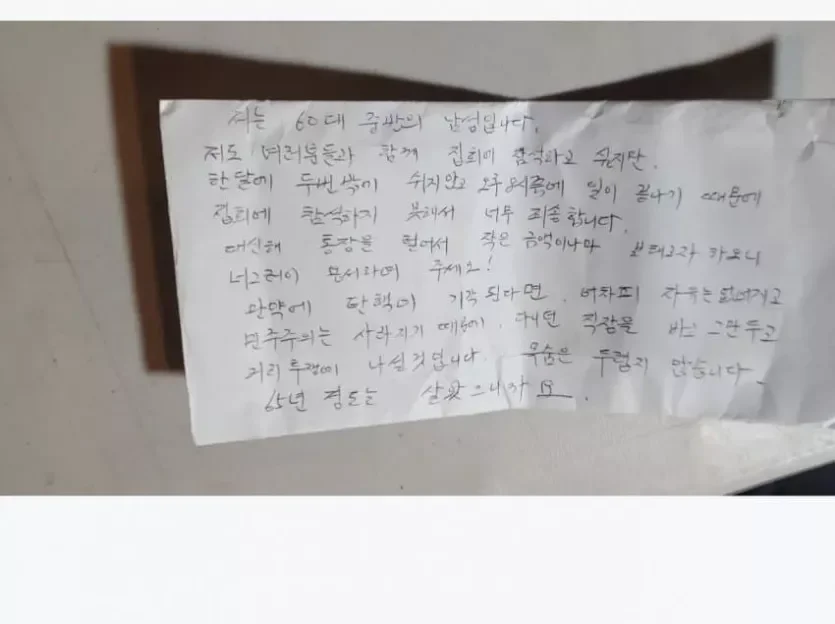 저는 60대 중반의 남성입니다.
저도 여러분들과 함께 집회에 참석하고 싶지만.
한달에 두번밖에 쉬지안고 오후 8시쯤에 일이 끝나기 때문에
집회에 참석하지 못해서 너무 죄송합니다.
대신해 통장을 털어서 작은 금액이나마 보태고자 하오니
너그러이 용서하여 주세요!
만약에 탄핵이 기각된다면. 어차피 자유는 없어지고
민주주의는 사라지기 때문에. 다니던 직장을 바로 그만두고
거리투쟁에 나설것입니다. 목숨은 두렵지 않습니다
65년 정도는 살았으니까요.